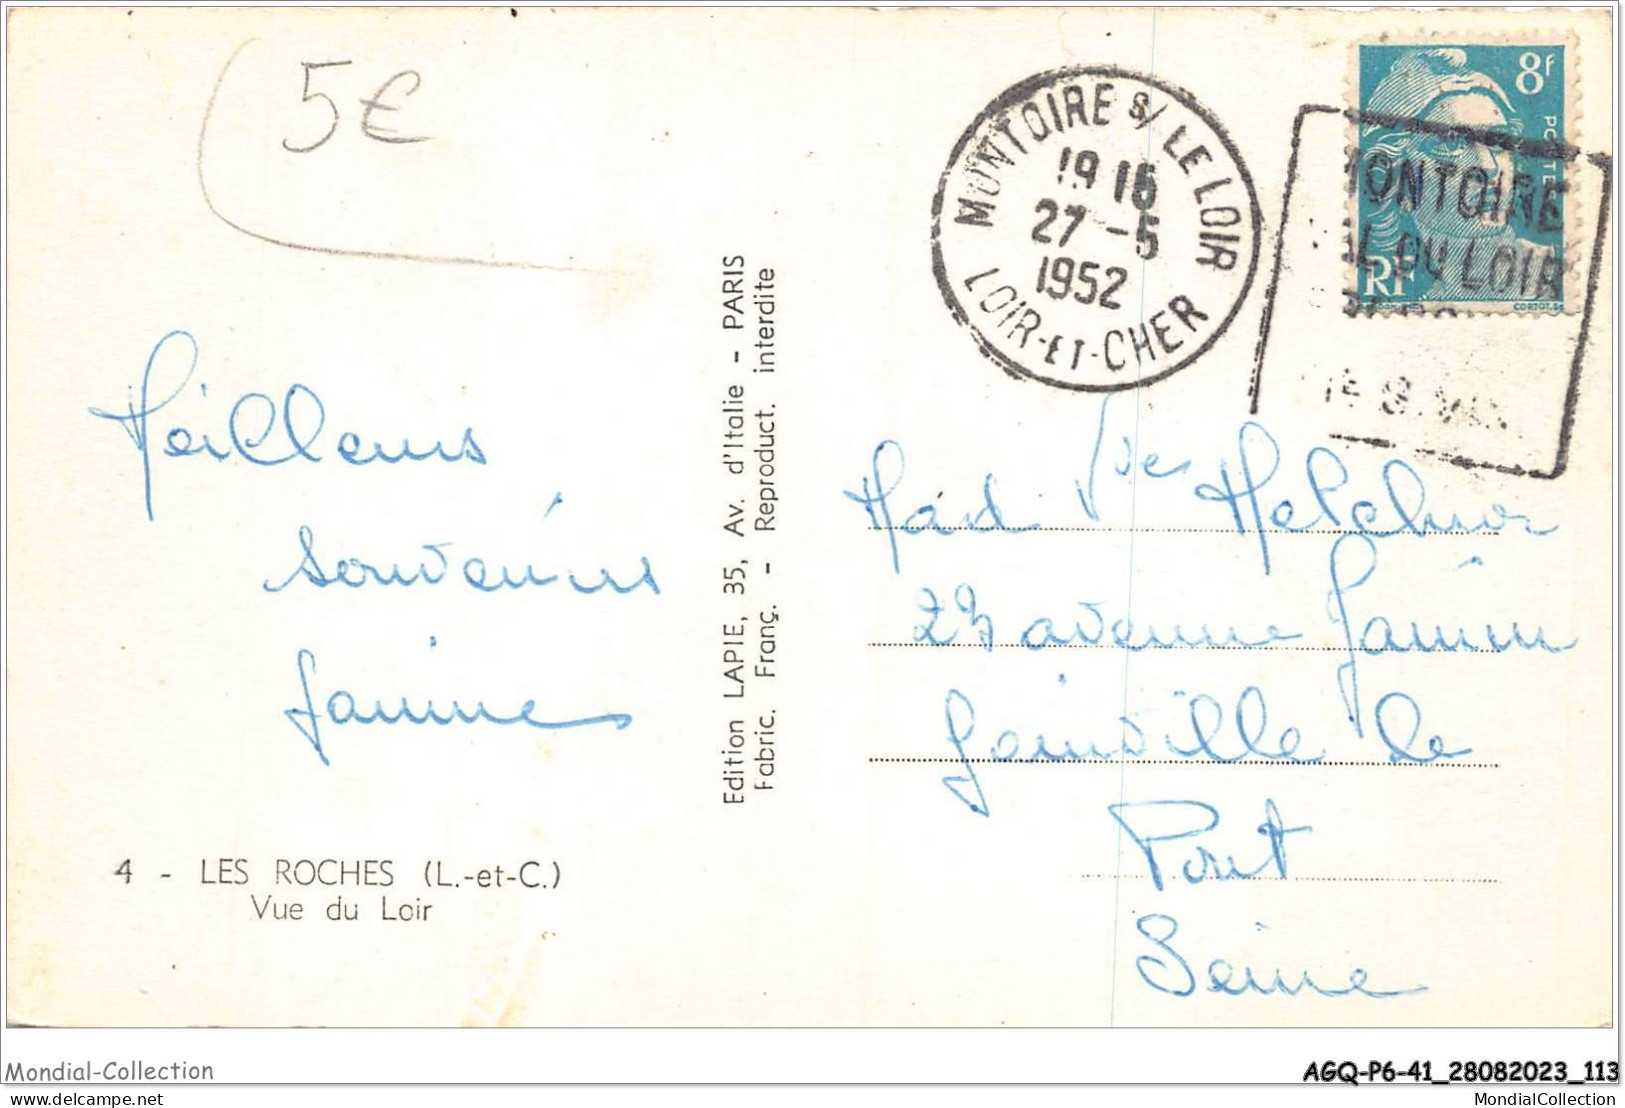 5€
MONTOIRE S/ LE LOIR
19 15
27 -5
1952
LOIR-ET-CHER
8F
POSTES
RF
MONTOIRE
VAL DU LOIR
Meilleurs
souvenirs
Janine
Edition LAPIE, 35, Av. d'Italie - PARIS
Fabric. Franç. - Reproduct. interdite
Vve Melchior
avenue Jamin
Joinville le
Pont
Seine
4 - LES ROCHES (L.-et-C.)
Vue du Loir
Mondial-Collection
AGQ-P6-41_28082023_113
delcampe.net
MondialCollection